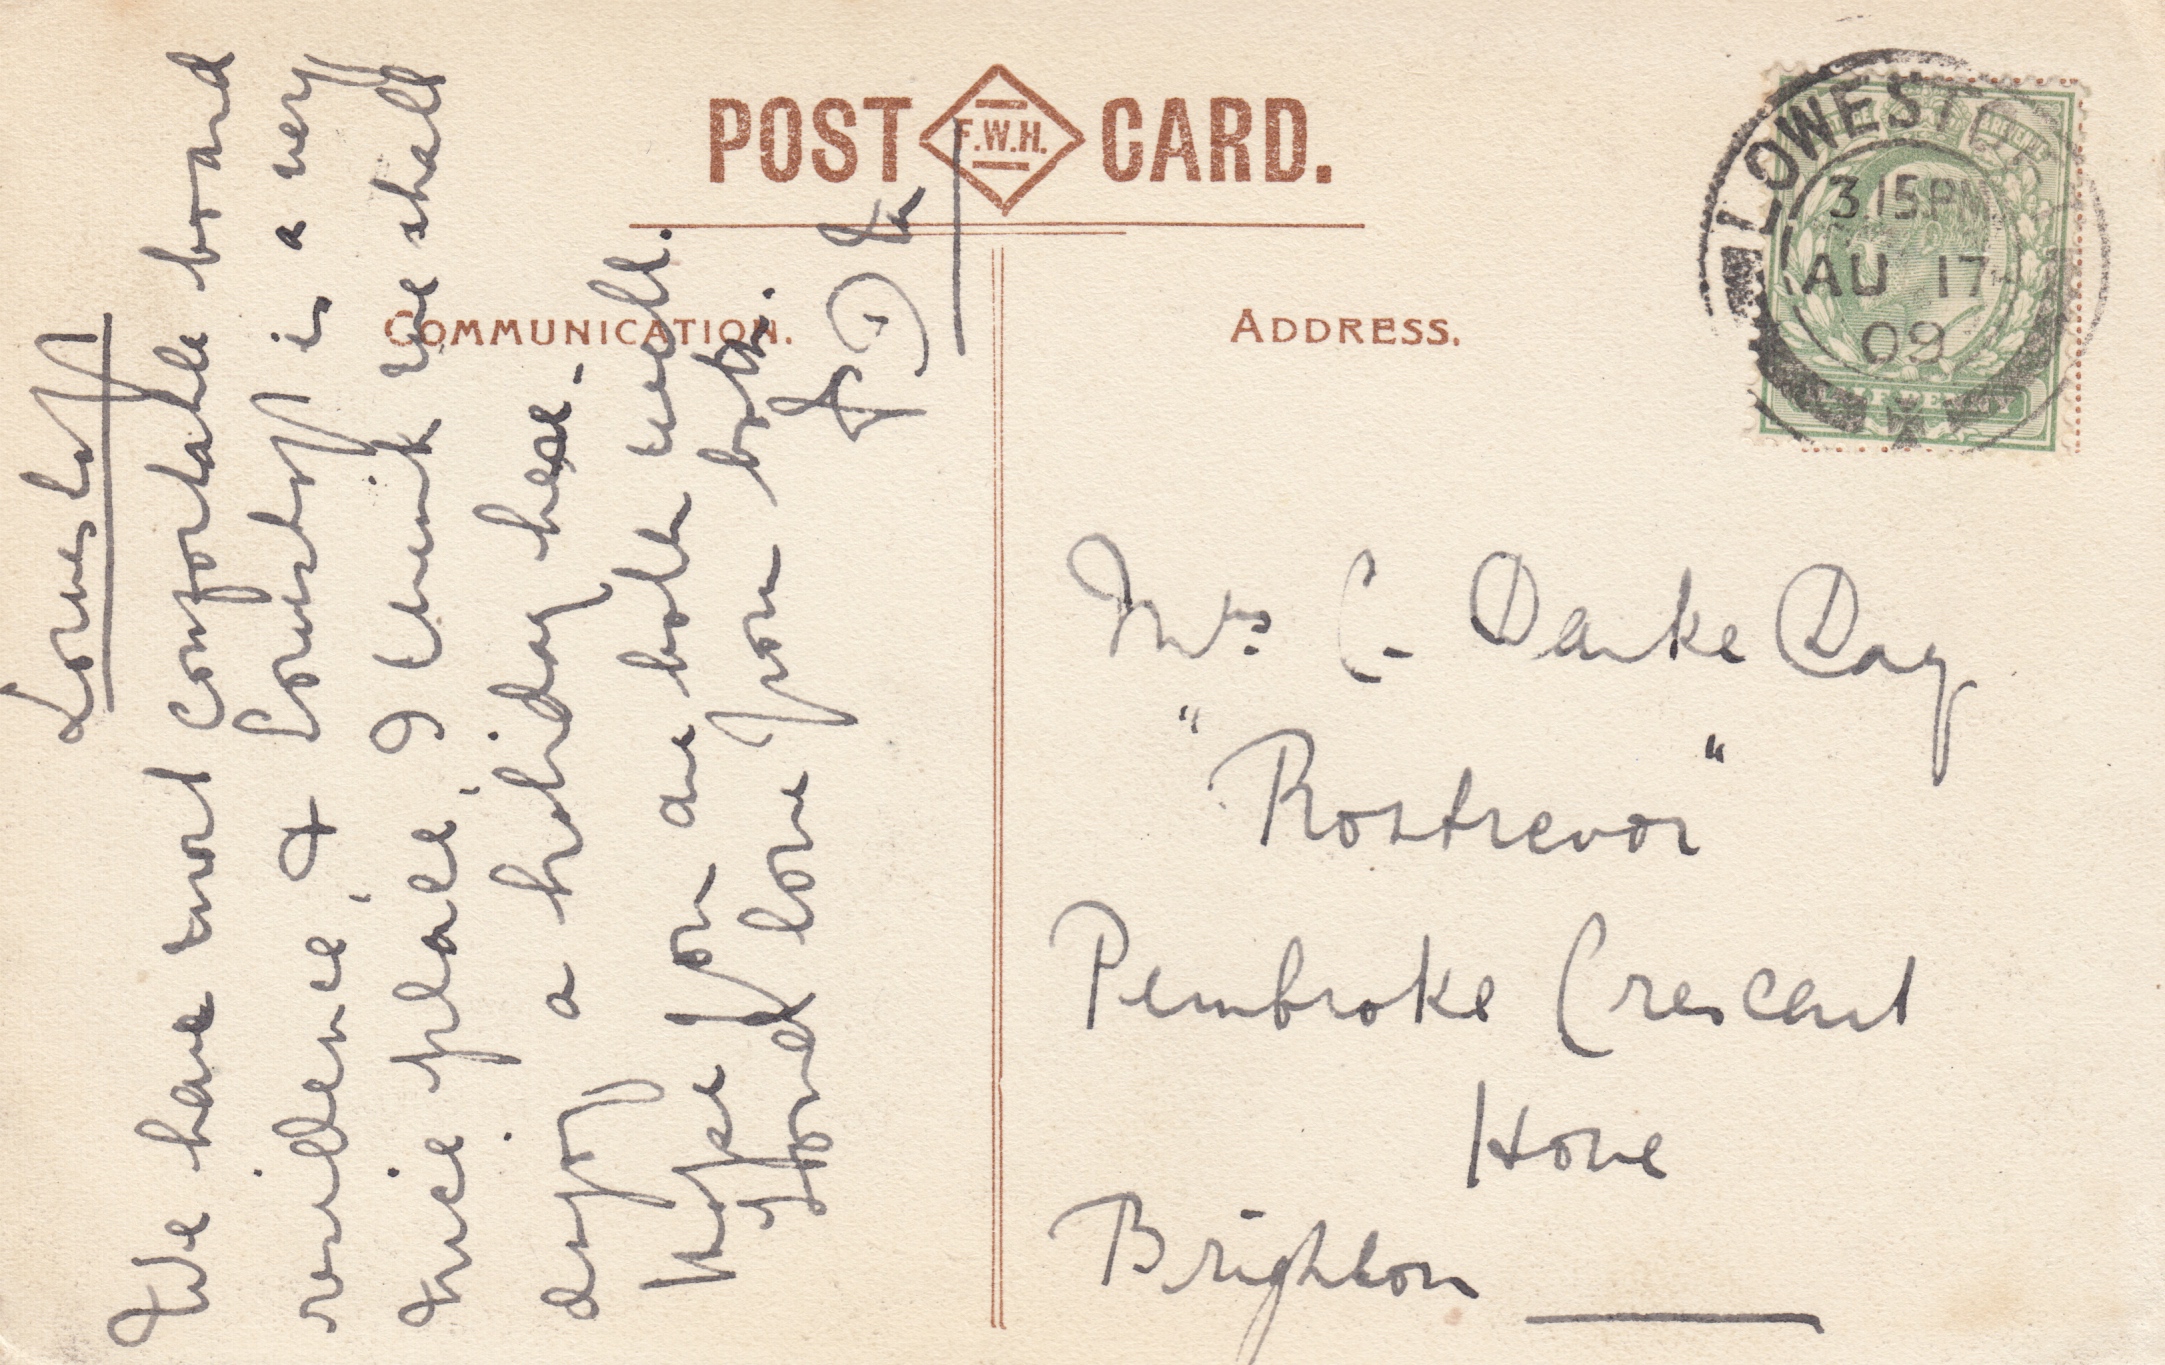 POST CARD.
F.W.H.
COMMUNICATION.
ADDRESS.
LOWESTOFT
3.15PM
AU 17
09
HALFPENNY
Lowestoft
We have most comfortable board
residence, & Lowestoft is a very
nice place, I think we shall
enjoy a holiday here.
Hope you are both well.
Fond love you both.
Mrs C. Darke Day
"Rostrevor"
Pembroke Crescent
Hove
Brighton